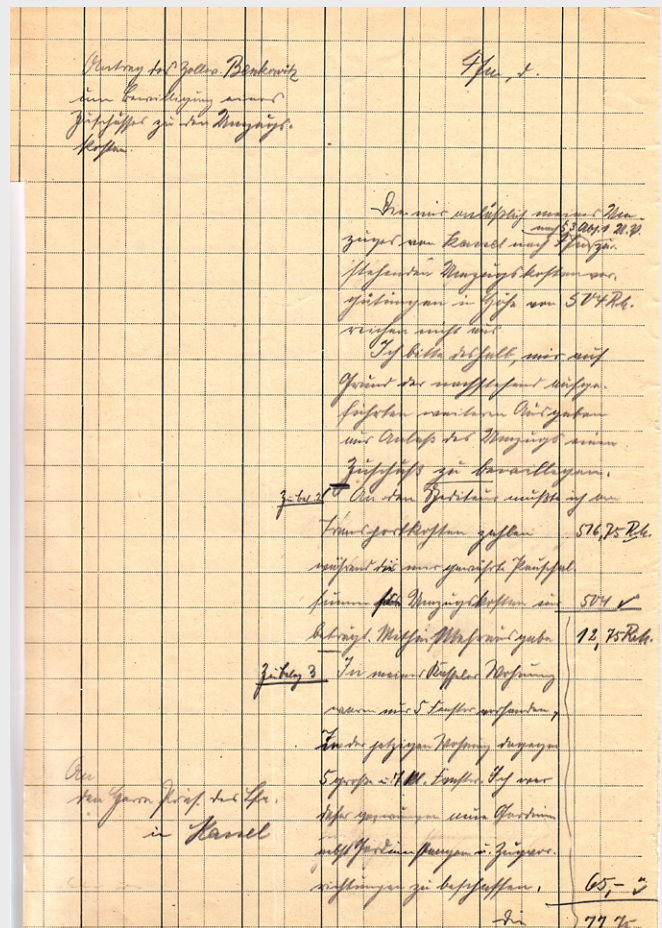 Antrag des Zollov. Benkowitz
um Bewilligung eines
Zuschusses zu den Umzugs-
kosten.
Ffm, d.
Die mir anläßlich meines Um-
nach § 3 Abs. 1 U.V.
zuges von Kassel nach Ffm zu-
stehenden Umzugskostenver-
gütungen in Höhe von 504 Rk.
reichen nicht aus.
Ich bitte deshalb, mir auf
Grund der nachstehend aufge-
führten weiteren Ausgaben
aus Anlaß des Umzugs einen
Zuschuß zu bewilligen.
Zu Bel. 2
An den Spediteur mußte ich an
Transportkosten zahlen 516,75 Rk.
während die mir gewährte Pauschal-
summe Umzugskosten nur 504
beträgt. Mithin Mehrausgabe 12,75 Rk.
Zu Beleg 3
In meiner Kasseler Wohnung
waren nur 5 Fenster vorhanden,
In der jetzigen Wohnung dagegen
5 große u. 1 kl. Fenster. Ich war
daher gezwungen neue Gardinen
nebst Gardinenstangen u. Zugvor-
richtungen zu beschaffen. 65,-
Die 77 75
An
den Herrn Präs. des Lfa.
in Kassel